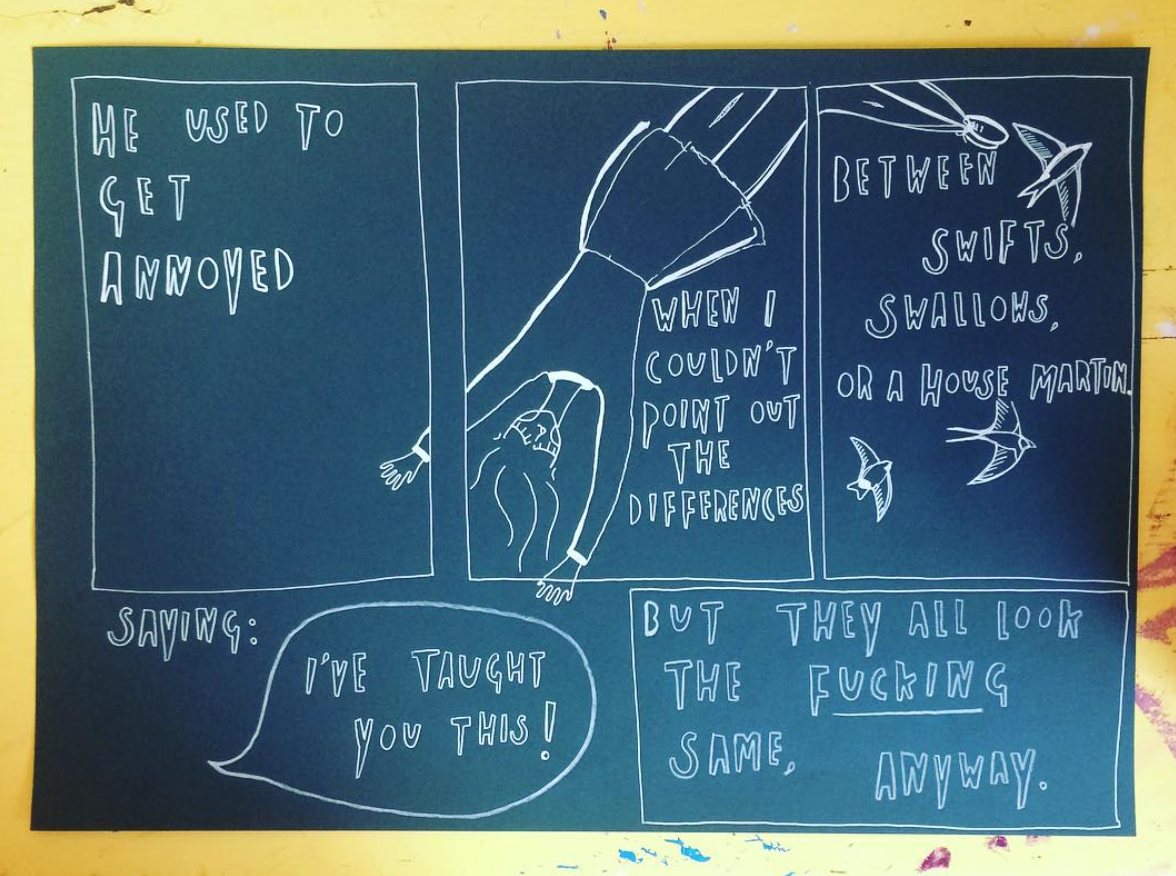 HE USED TO
GET
ANNOYED
WHEN I
COULDN'T
POINT OUT
THE
DIFFERENCES
BETWEEN
SWIFTS,
SWALLOWS,
OR A HOUSE MARTIN.
SAYING:
I'VE TAUGHT
YOU THIS!
BUT THEY ALL LOOK
THE FUCKING
SAME,
ANYWAY.